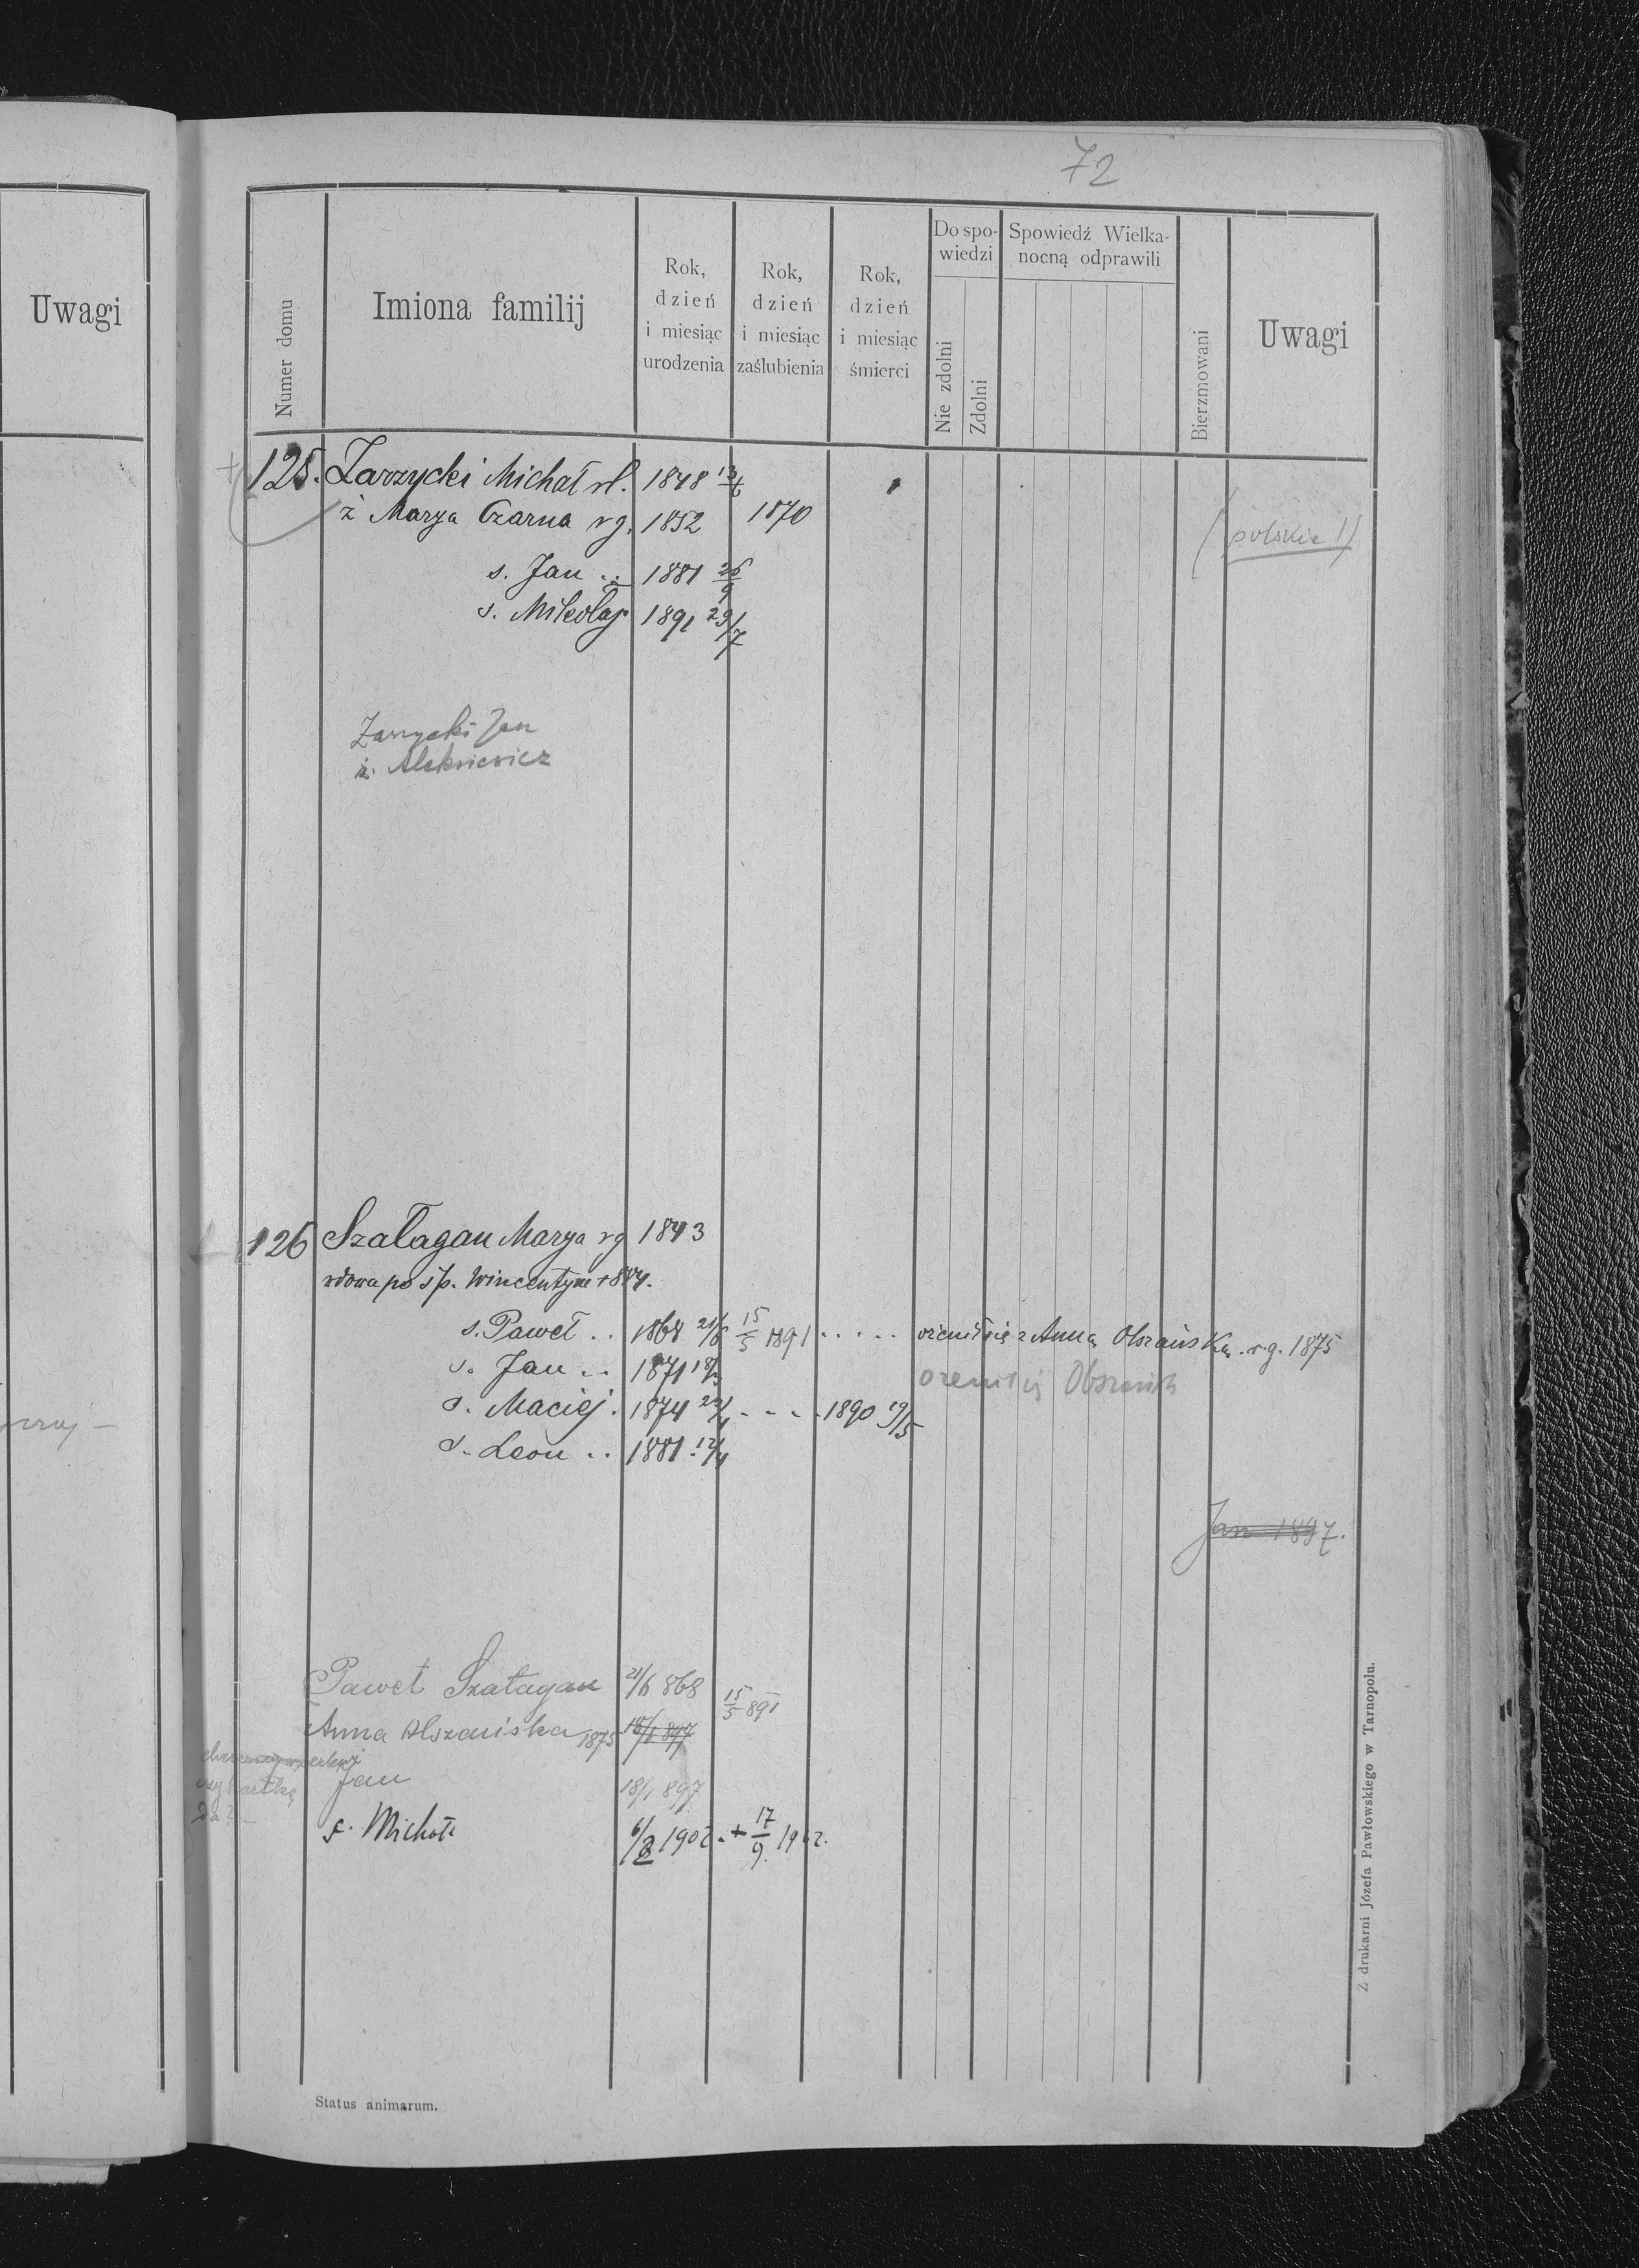 72
Uwagi
Numer domu
Imiona familij
Rok, dzień i miesiąc urodzenia
Rok, dzień i miesiąc zaślubienia
Rok, dzień i miesiąc śmierci
Do spowiedzi
Nie zdolni
Zdolni
Spowiedź Wielkanocną odprawili
Bierzmowani
Uwagi
125. Zarzycki Michał rł. 1848 13/6
ż Marya Czarna rg. 1852 1870
(polskie!)
s. Jan .. 1881 26/9
s. Mikołaj 1891 29/7
Zarzycki Jan
ż. Aleksiewicz
126 Szałagan Marya rg 1843
wdowa po śp. Wincentym +884.
s. Paweł .. 1868 21/6 15/5 1891 ..... ożenił się z Anną Olszańską r.g. 1875
s. Jan .. 1871 18/3
s. Maciej . 1874 22/1 - - - . 1890 19/5
s. Leon .. 1881 12/4
Jan 1897.
Paweł Szałagan 21/6 868 15/5 891
Anna Olszańska 1875 18/1 897
Jan 18/1 897
s. Michał 6/8 1902 . + 17/9. 1902.
Status animarum.
Z drukarni Józefa Pawłowskiego w Tarnopolu.